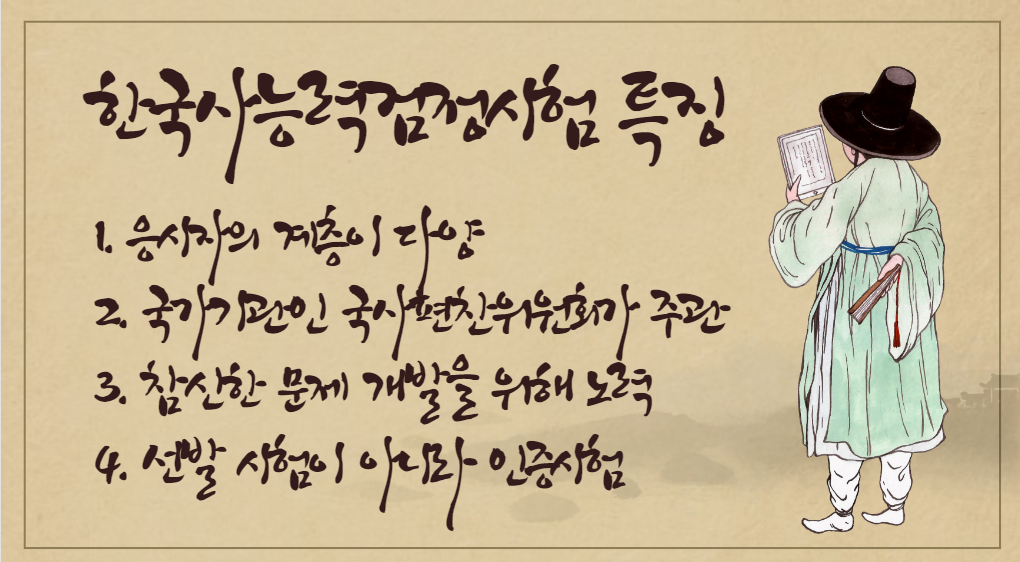 한국사능력검정시험 특징
1. 응시자의 계층이 다양
2. 국가기관인 국사편찬위원회가 주관
3. 참신한 문제 개발을 위해 노력
4. 선발 시험이 아니라 인증시험